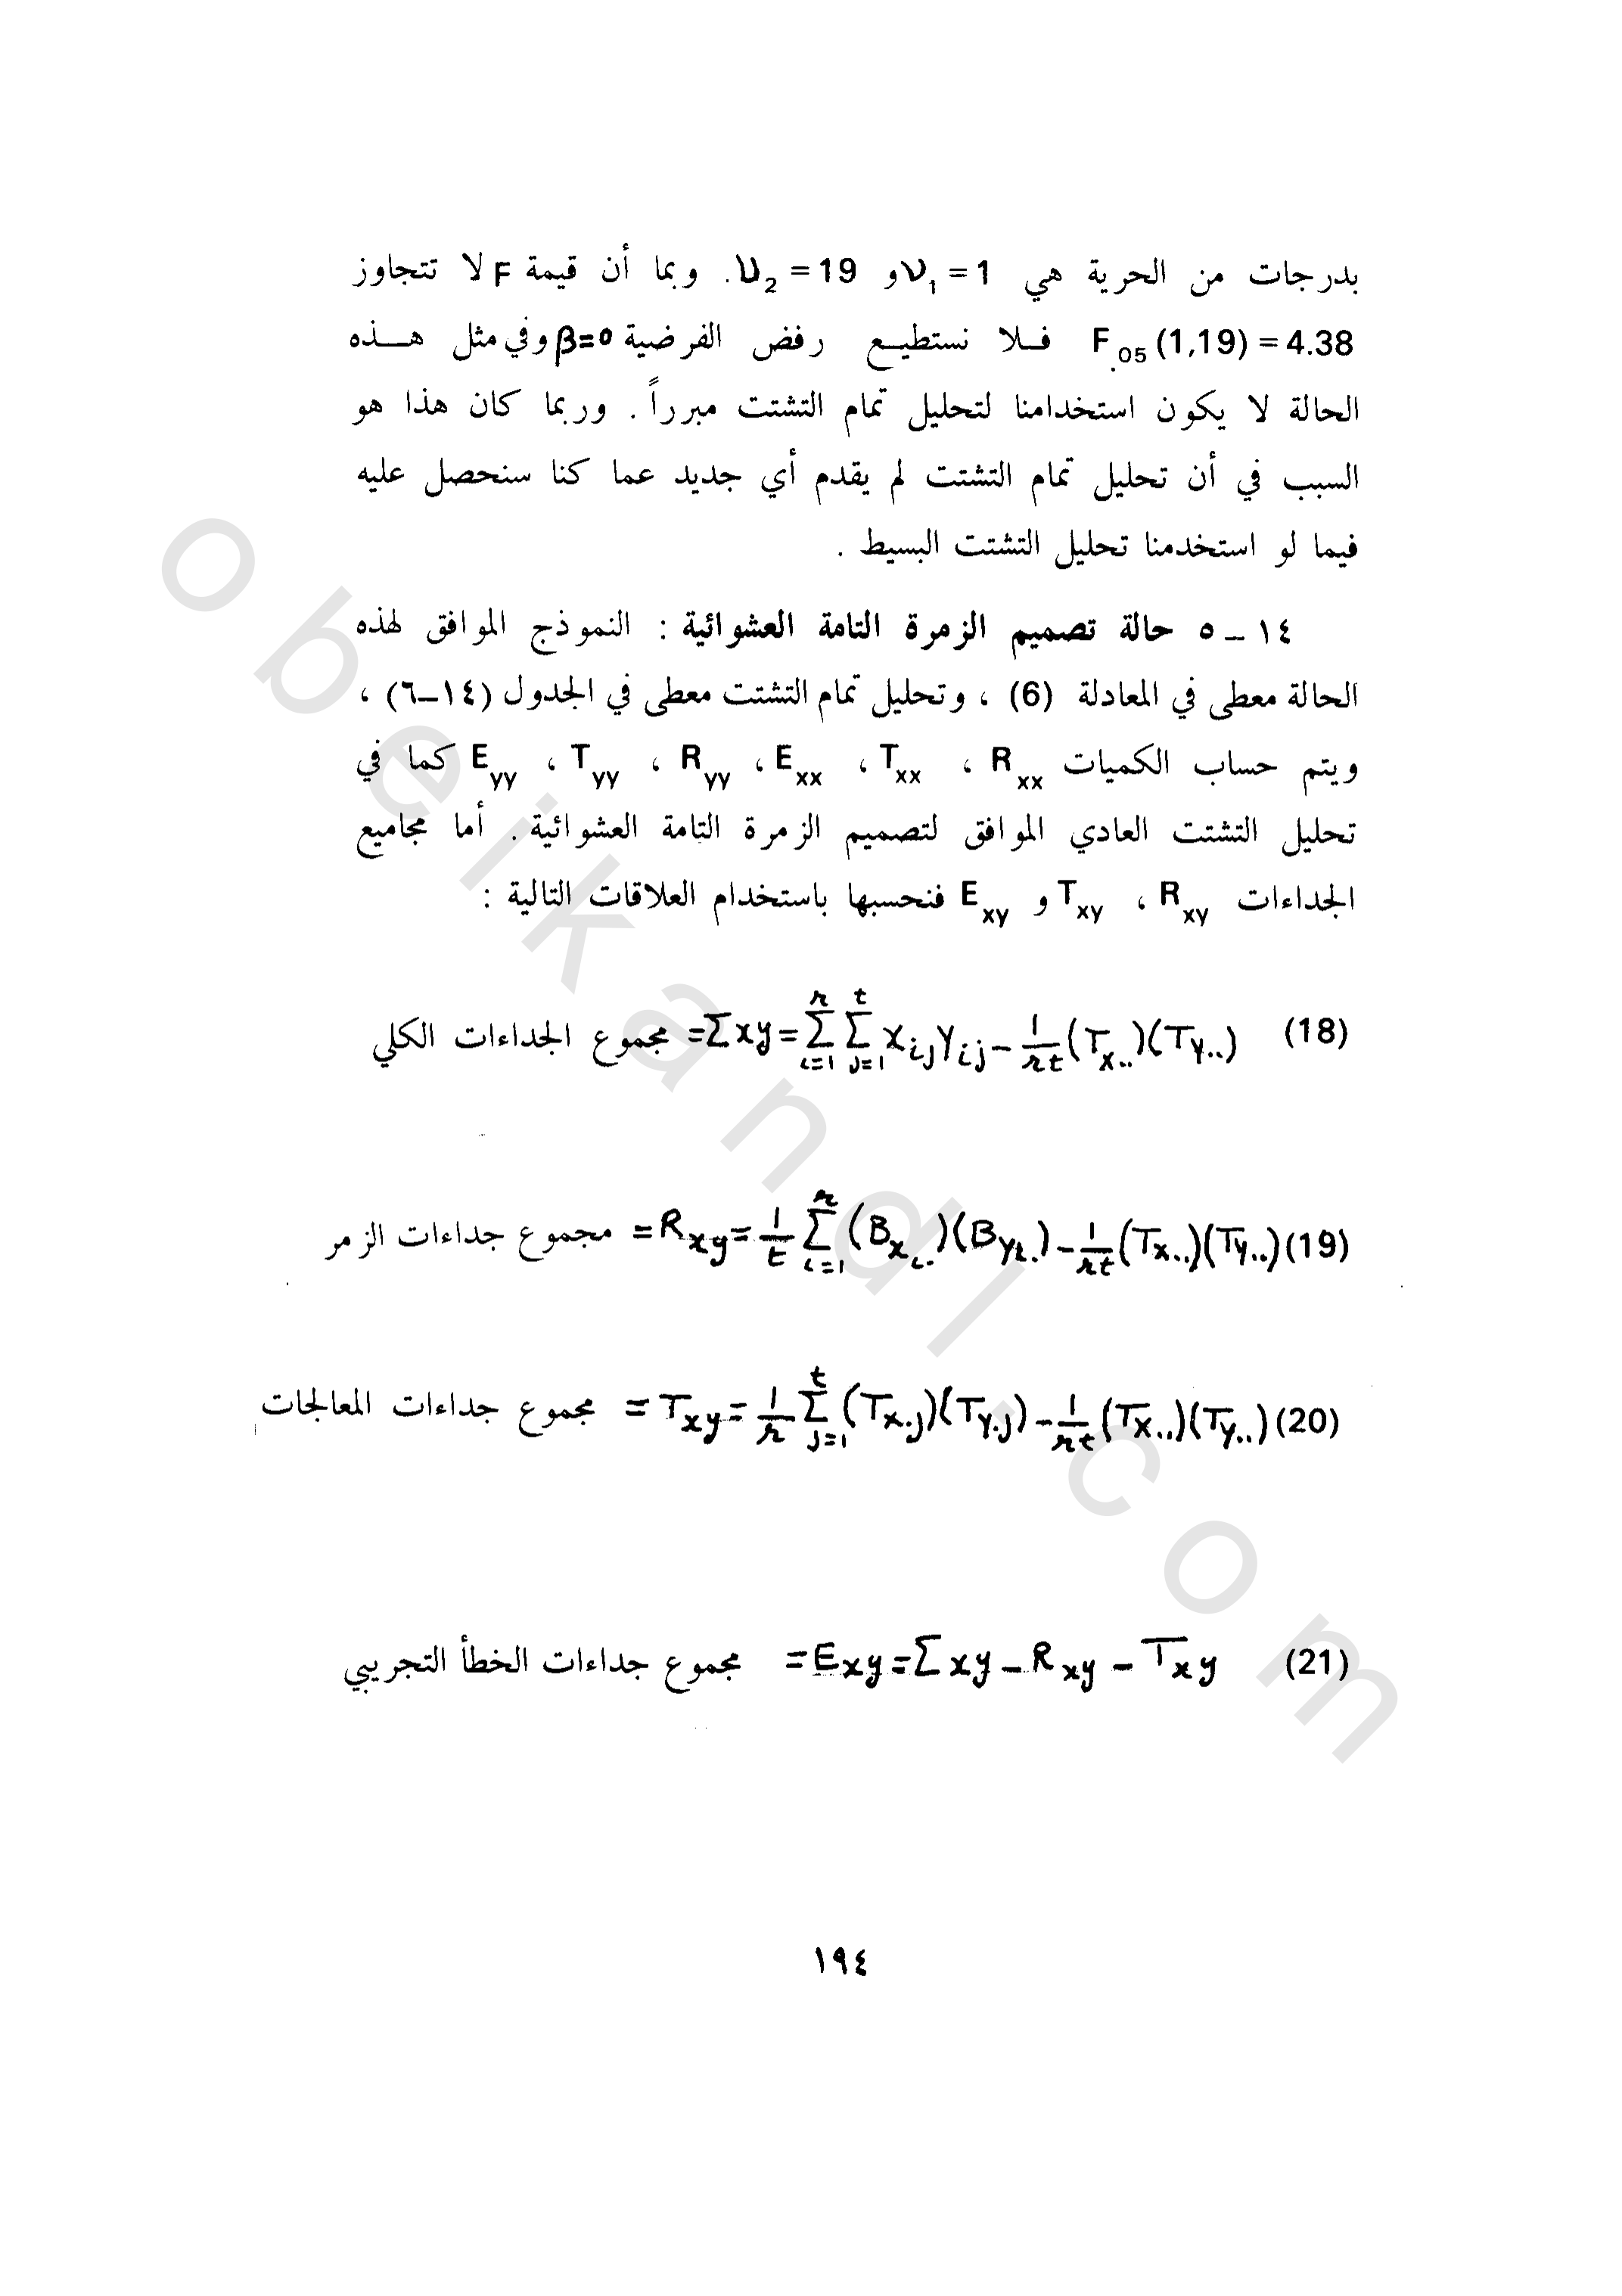 بدرجات من الحرية هي ν₁ = 1 و ν₂ = 19. وبما أن قيمة F لا تتجاوز
F.₀₅ (1,19) = 4.38 فـلا نستطيـع رفض الفرضية β=0 وفي مثل هـذه
الحالة لا يكون استخدامنا لتحليل تمام التشتت مبرراً . وربما كان هذا هو
السبب في أن تحليل تمام التشتت لم يقدم أي جديد عما كنا سنحصل عليه
فيما لو استخدمنا تحليل التشتت البسيط .
١٤ – ٥ حالة تصميم الزمرة التامة العشوائية : النموذج الموافق لهذه
الحالة معطى في المعادلة (6) ، وتحليل تمام التشتت معطى في الجدول (١٤–٦) ،
ويتم حساب الكميات R_xx ، T_xx ، E_xx ، R_yy ، T_yy ، E_yy كما في
تحليل التشتت العادي الموافق لتصميم الزمرة التامة العشوائية . أما مجاميع
الجداءات R_xy ، T_xy و E_xy فنحسبها باستخدام العلاقات التالية :
مجموع الجداءات الكلي =Σxy=Σ_{i=1}^{r} Σ_{j=1}^{t} x_{ij}y_{ij} – 1/rt (T_{x..})(T_{y..}) (18)
مجموع جداءات الزمر =R_{xy}= 1/t Σ_{i=1}^{r} (B_{xi.})(B_{yi.}) – 1/rt (T_{x..})(T_{y..}) (19)
مجموع جداءات المعالجات =T_{xy}= 1/r Σ_{j=1}^{t} (T_{x.j})(T_{y.j}) – 1/rt (T_{x..})(T_{y..}) (20)
مجموع جداءات الخطأ التجريبي =E_{xy}=Σxy – R_{xy} – T_{xy} (21)
١٩٤
obeikandl.com